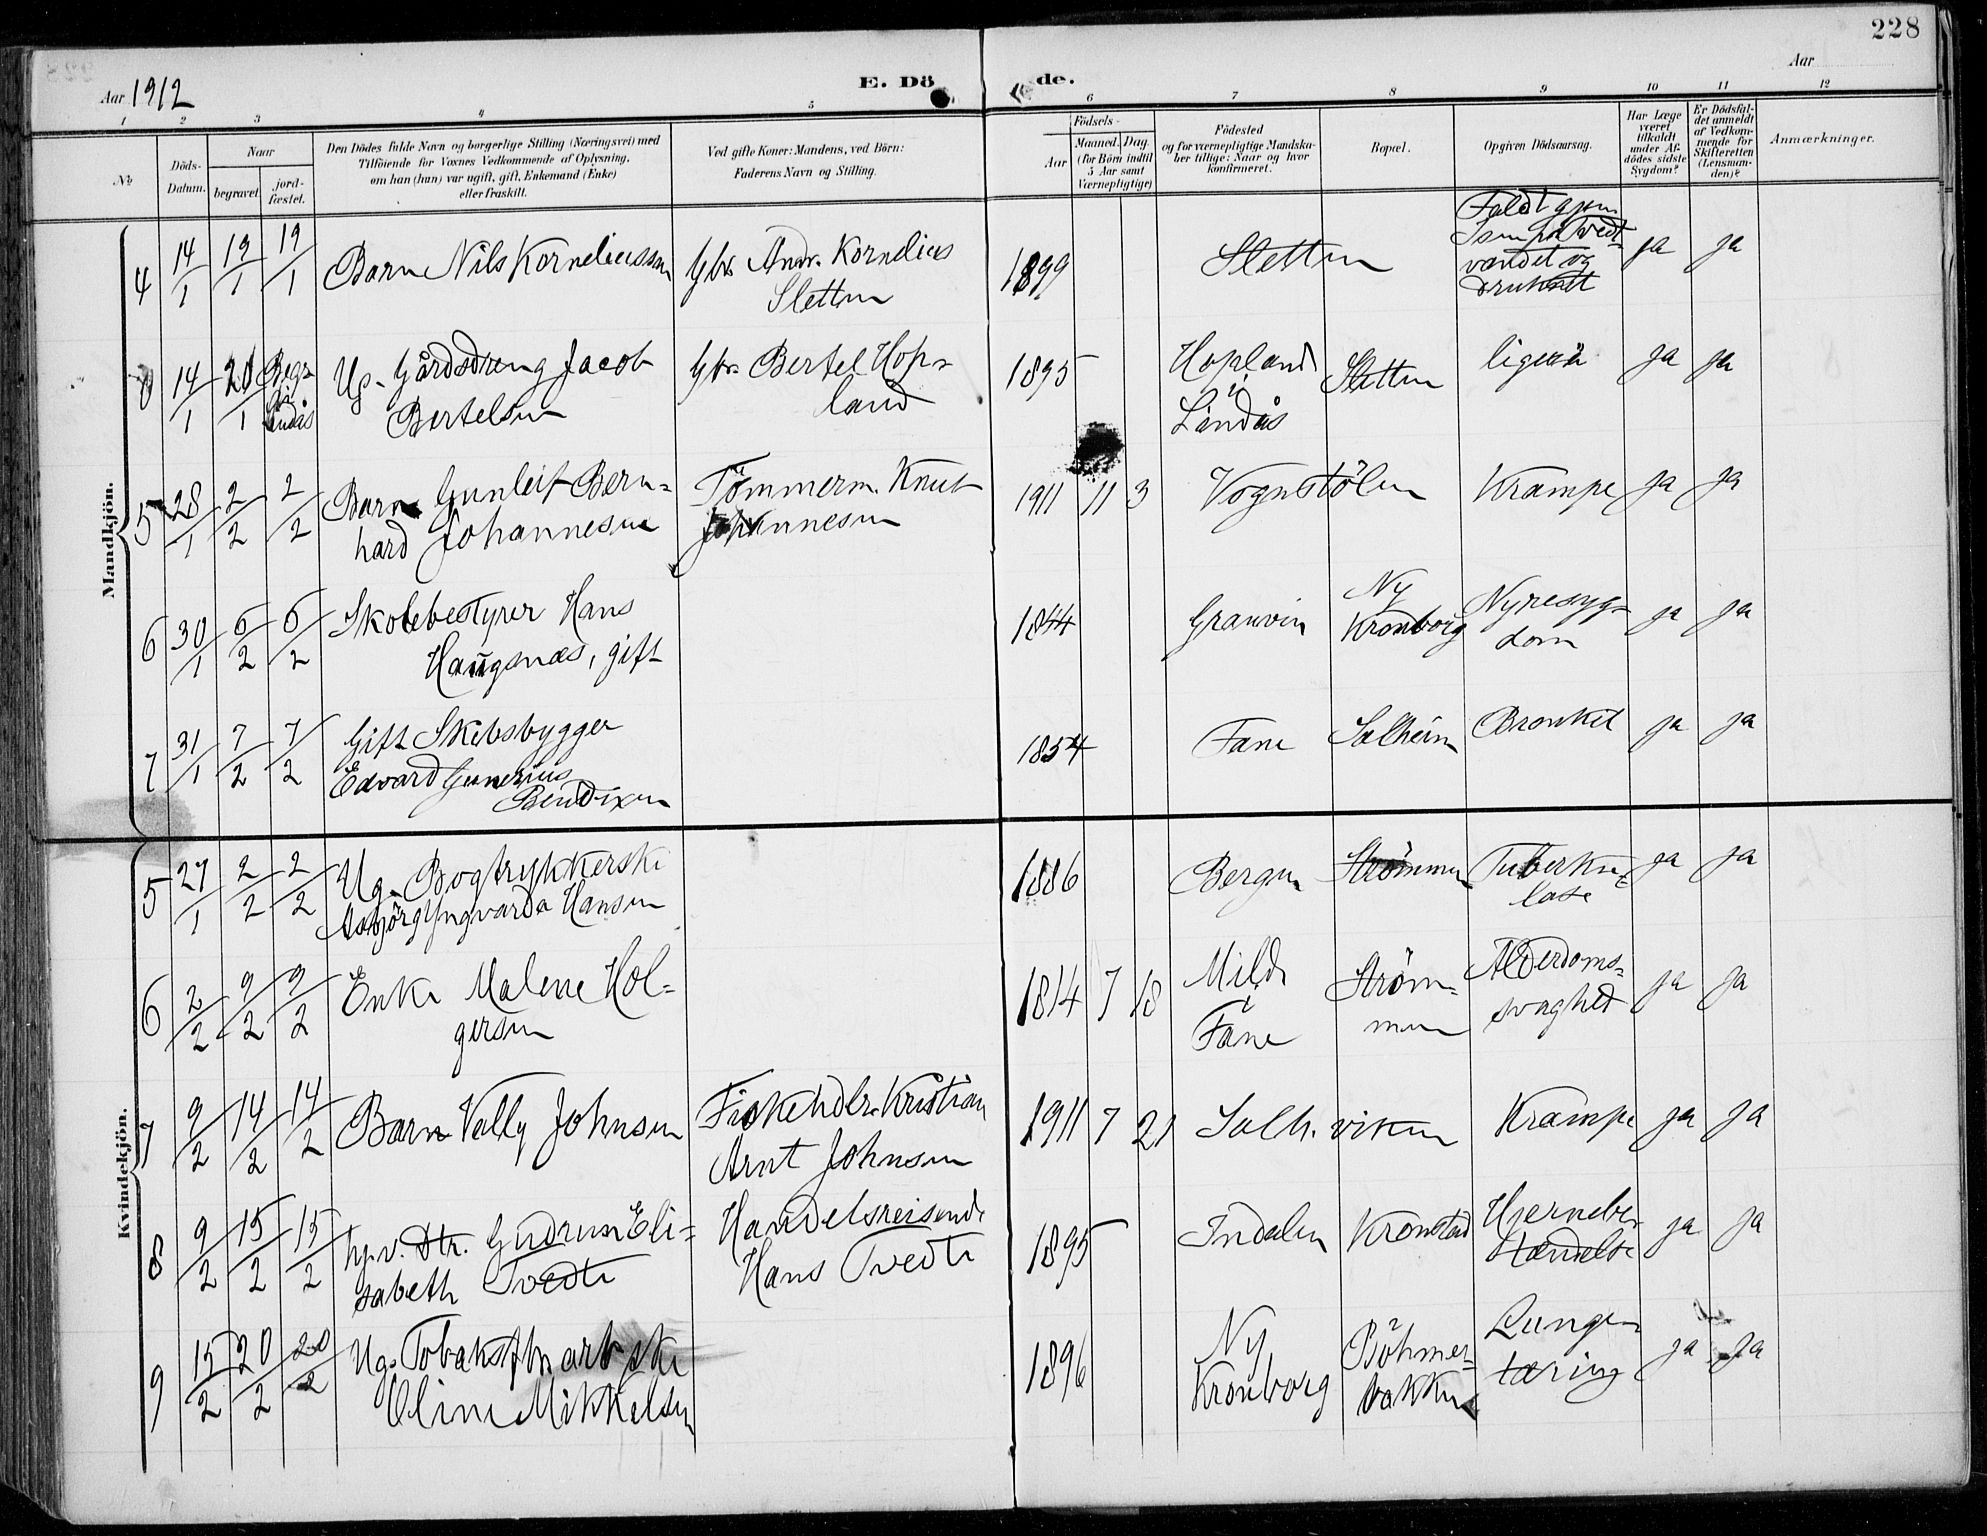 228
Aar 1912
E. Dö
de.
Aar
1 2 3 4 5 6 7 8 9 10 11 12
No
Döds-Datum.
Naar
begravet.
jord-fæstet.
Den Dödes fulde Navn og borgerlige Stilling (Næringsvei) med
Tilföiende for Voxnes Vedkommende af Oplysning,
om han (hun) var ugift, gift, Enkemand (Enke)
eller fraskilt.
Ved gifte Koner: Mandens, ved Börn:
Faderens Navn og Stilling.
Födsels-
Aar
Maaned. Dag.
(for Börn indtil
5 Aar samt
Værnepligtige)
Födested
og for værnepligtige Mandska-
ber tillige: Naar og hvor
konfirmeret.
Bopæl.
Opgiven Dödsaarsag.
Har Læge
været
tilkaldt
under Af-
dödes sidste
Sygdom?
Er Dödsfal-
det anmeldt
af Vedkom-
mende for
Skifteretten
(Lensman-
den)?
Anmærkninger.
Mandkjön.
4 14/1 19/1 19/1 Barn Nils Korneliussen Gbr. Andr. Kornelius
Sletten 1899 Sletten Faldt gjen.
Isen på Tvedt-
vandet og
druknet ja ja
0 14/1 20/1 Begr.
i
Lindås Ug. Gårdsdreng Jacob
Bertelsen Gbr. Bertel Hop-
land 1895 Hopland
i
Lindås Sletten ligeså ja ja
5 28/1 2/2 2/2 Barn Gunleif Bern-
hard Johannesen Tömmerm. Knut
Johannesen 1911 11 3 Vognstölen Krampe ja ja
6 30/1 6/2 6/2 Skolebestyrer Hans
Haugsnæs, gift 1844 Granvin Ny
Kronborg Nyresyg-
dom ja ja
7 31/1 7/2 7/2 Gift Skibsbygger
Edvard Gunerius
Bendixen 1854 Fane Solheim Bronkit ja ja
Kvindekjön.
5 27/1 2/2 2/2 Ug. Bogtrykkerske
Asbjörg Yngvarda Hansen 1886 Bergen Strömmen Tuberku-
lose ja ja
6 2/2 9/2 9/2 Enke Malene Hol-
gersen 1814 7 18 Milde
i
Fane Ström-
men Alderdoms-
svaghed ja ja
7 9/2 14/2 14/2 Barn Vally Johnsen Fiskehdlr. Kristian
Arnt Johnsen 1911 7 21 Solh. viken Krampe ja ja
8 9/2 15/2 15/2 hjv. Dtr. Gudrun Eli-
sabeth Tvedte Handelsreisende
Hans Tvedte 1895 Indalen Kronstad Hjernebe-
tændelse ja ja
9 15/2 20/2 20/2 Ug. Tobaksfbr.arb.ske
Oline Mikkelsen 1896 Ny
Kronborg Böhmer-
bakken Lunge-
tæring ja ja